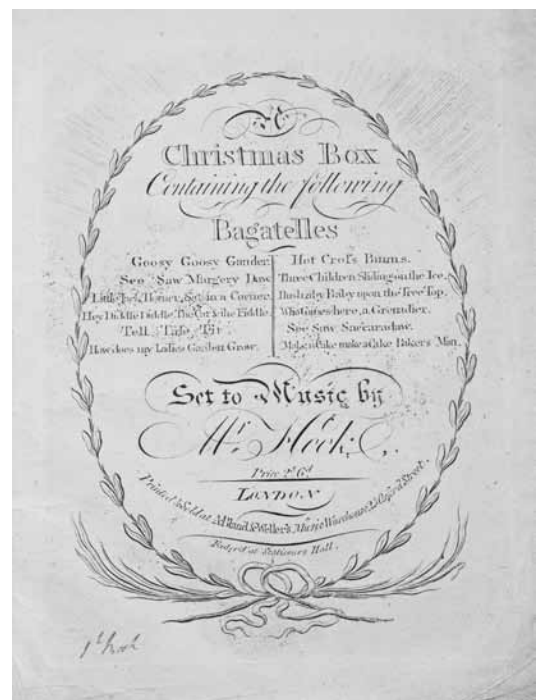 A
Christmas Box
Containing the following
Bagatelles
Goosy Goosy Gander.
See Saw Margery Daw
Little Jack Horner, Sat in a Corner.
Hey Diddle Diddle The Cat & the Fiddle.
Tell Tale Tit
How does my Ladies Garden Grow.
Hot Cross Bunns.
Three Children Sliding on the Ice.
Hushaby Baby upon the Tree Top.
Who Comes here, a Grenadier.
See Saw Saccaradaw.
Make a Cake make a Cake Bakers Man.
Set to Music by
Mr. Hook.
Price 2s. 6d.
LONDON
Printed & Sold at Bland & Weller's Music Warehouse Oxford Street.
Enter'd at Stationers Hall.
1st book